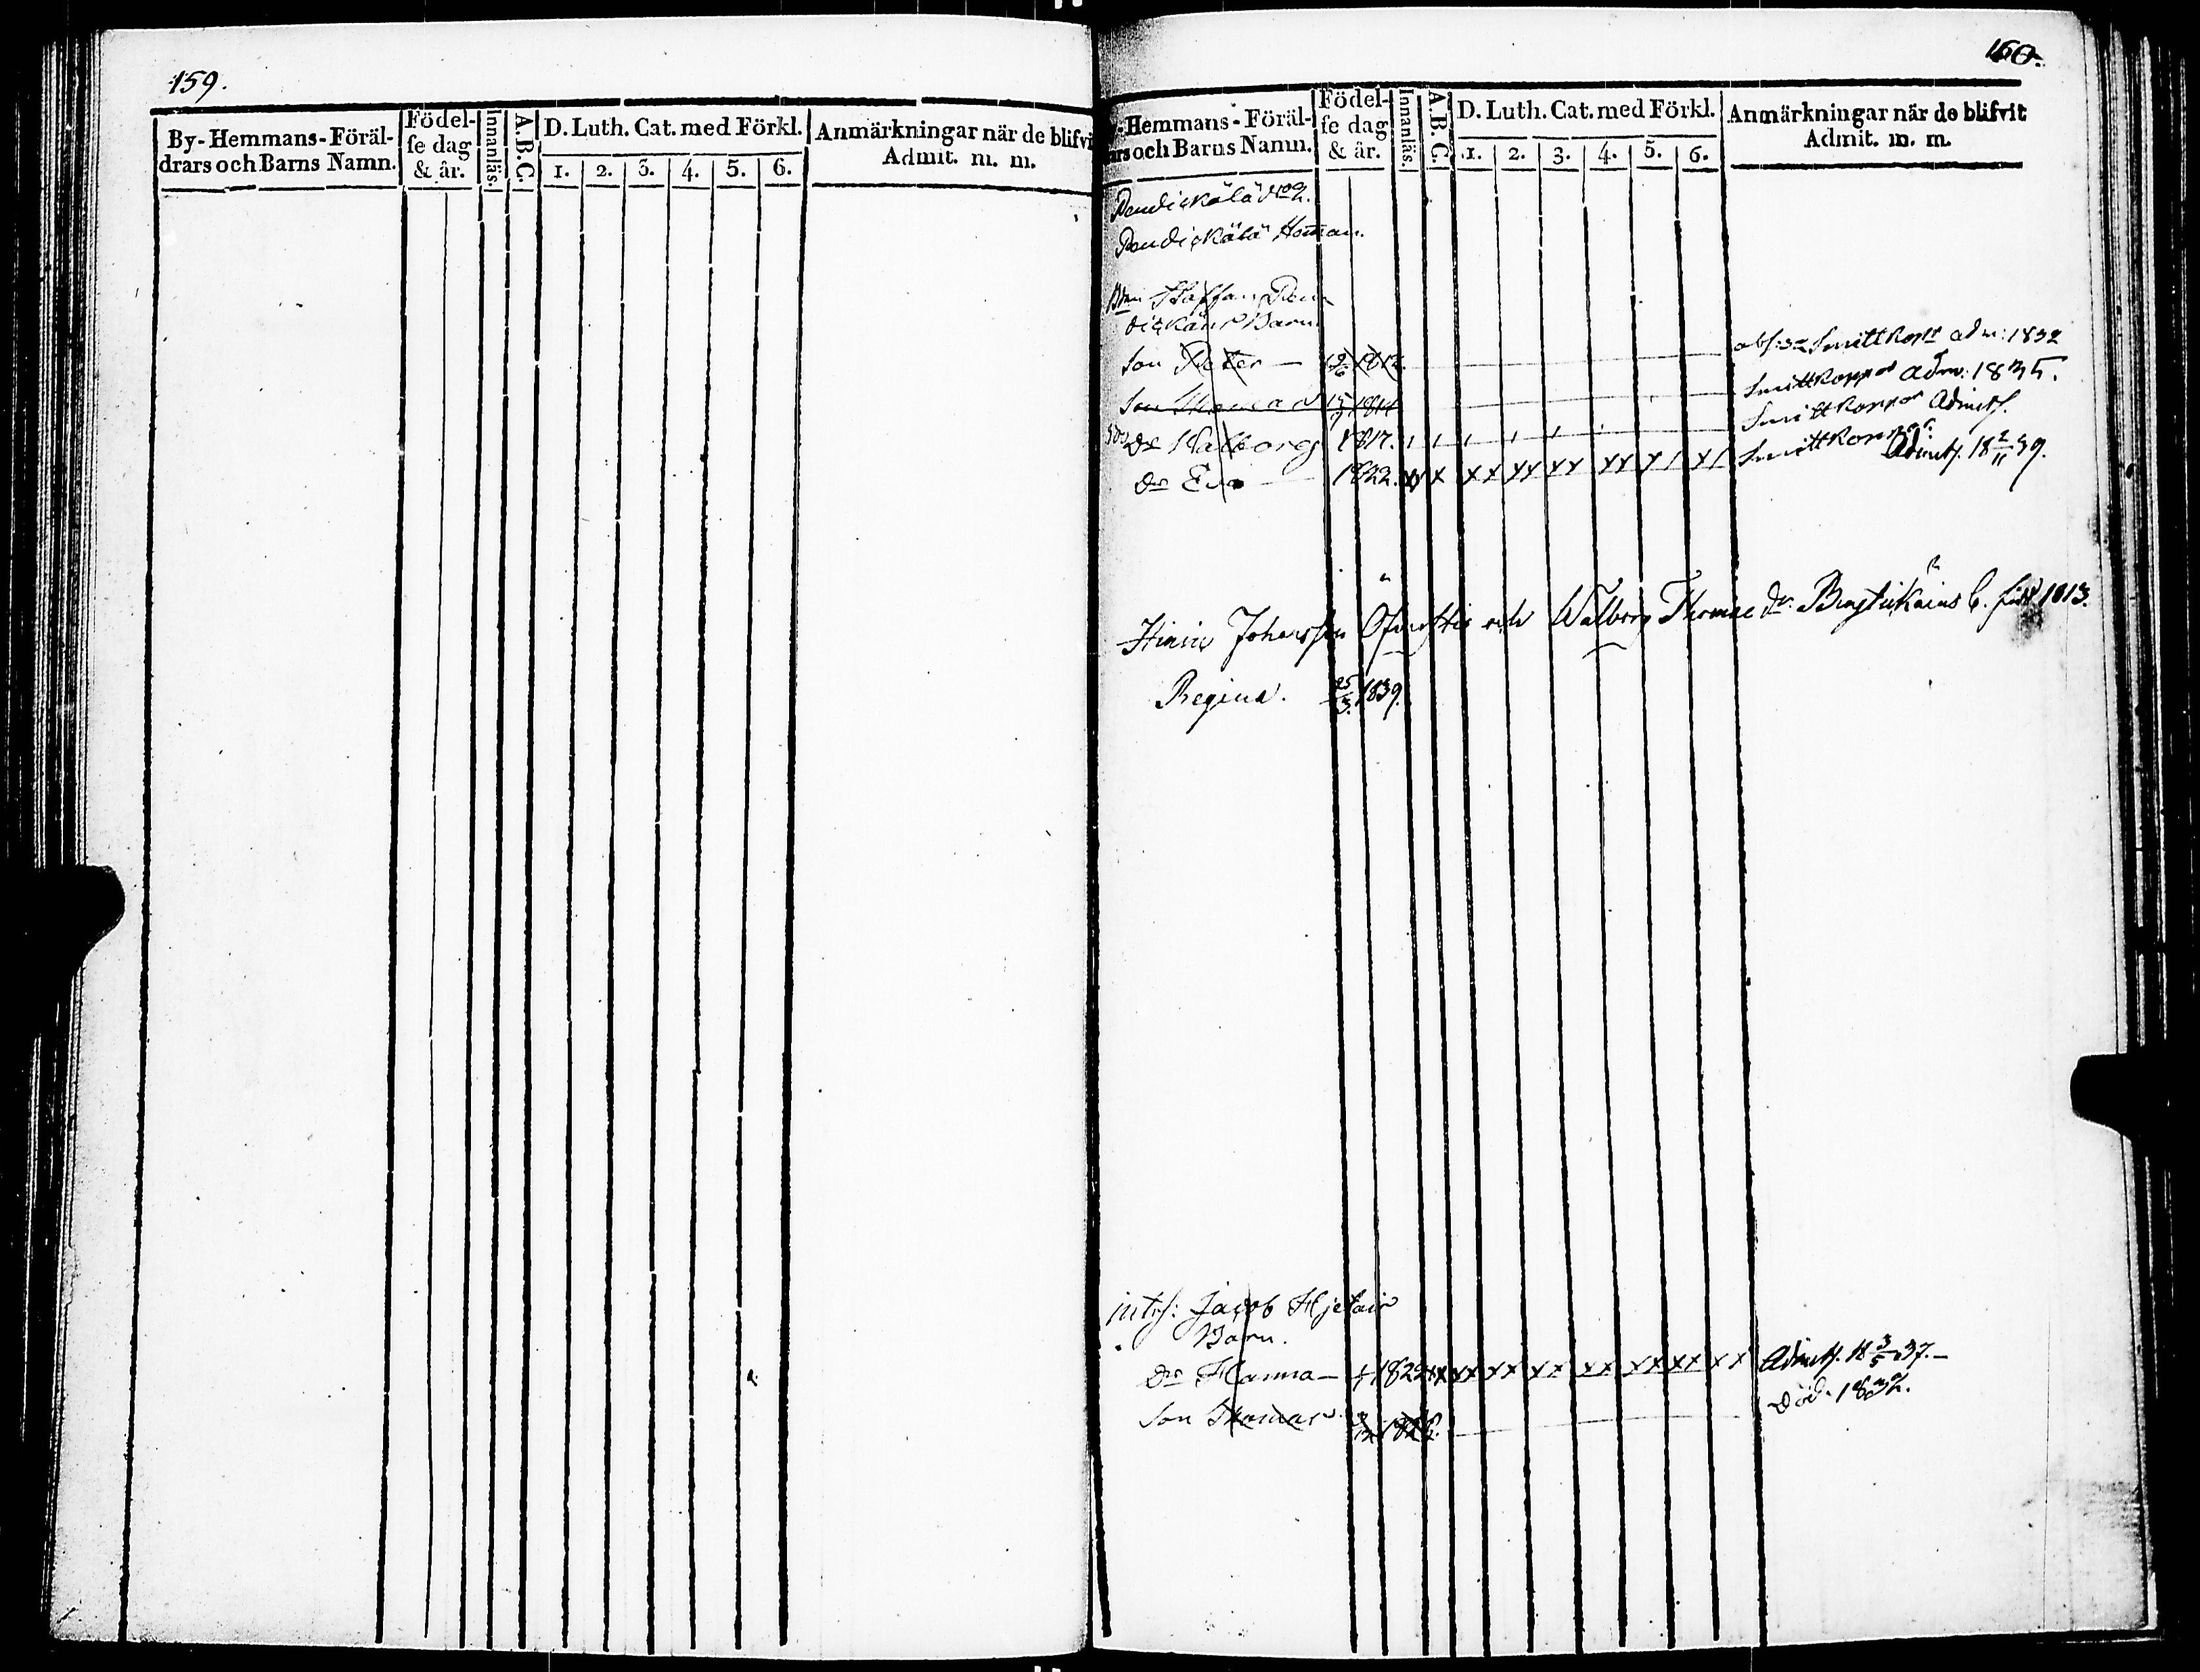 159.
By-Hemmans-Föräl-
drars och Barns Namn.
Födel-
se dag
& år.
Innanläs.
A.B.C.
D. Luth. Cat. med Förkl.
1. 2. 3. 4. 5. 6.
Anmärkningar när de blifvi
Admit. m. m.
160.
-Hemmans-Föräl-
ars och Barns Namn.
Födel-
se dag
& år.
Innanläs.
A.B.C.
D. Luth. Cat. med Förkl.
1. 2. 3. 4. 5. 6.
Anmärkningar när de blifvit
Admit. m. m.
Pendickälä
Pendickälä Homan.
Staffan Pen
dickäin Barn
Son Peter — 1812. Smittkopp adm: 1832
Son Thomas 15/9 1814 Smittkoppor adm: 1835.
Dr Walborg 1817. Smittkoppor Admitt.
Dr Eva 1822. x x x x x x x x x x x / x / Smittkoppor
Admitt. 18 2/11 39.
Johansson och Walborg Thomae dr. b. född 1813.
Regina. 25/3. 1839.
Jacob Hjetain
Barn.
Dr Hanna — 1822 x x x x x x x x x x x x x x Admitt. 18 3/5 37. —
Son Thomas Död. 1832.